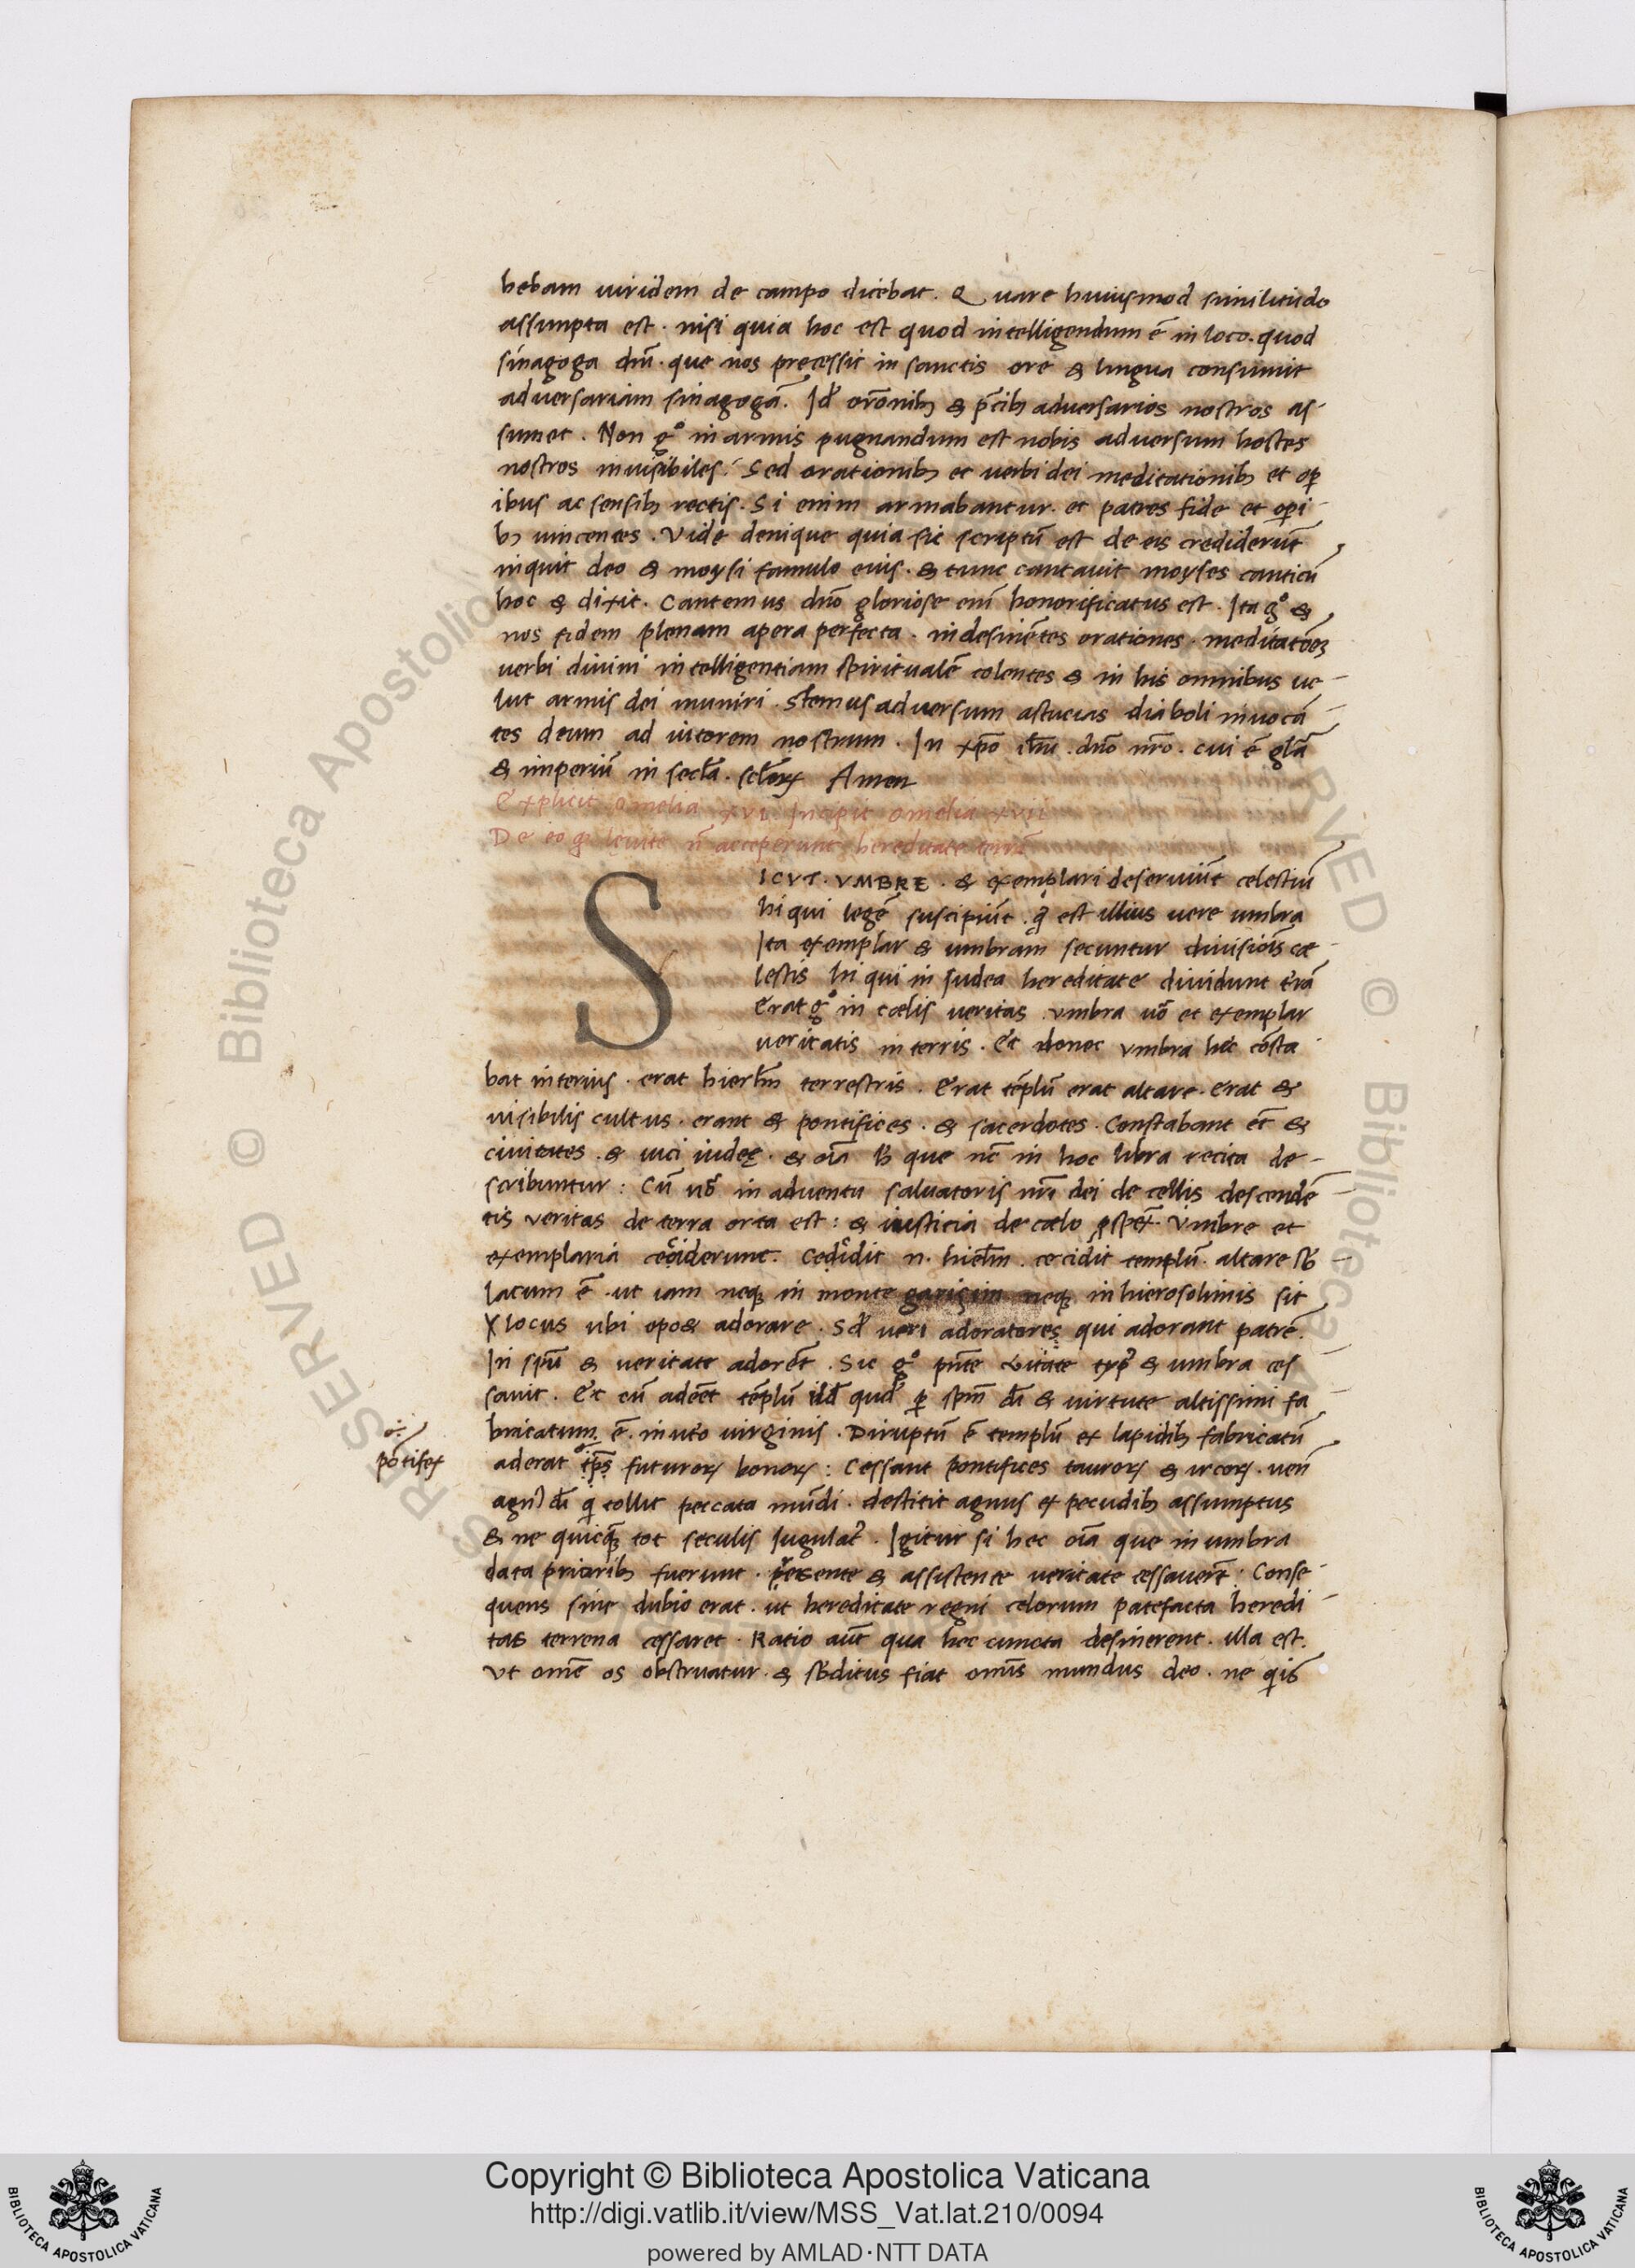 hebam uiridem de campo dicebat. Quare huiusmod similitudo
assumpta est. nisi quia hoc est quod intelligendum ē in loco. quod
sinagoga dnī. que nos precessit in sanctis ore & lingua consumit
adversariam sinagogā. Id orōnib; & p̄cib; adversarios nostros as-
sumet. Non g° in armis pugnandum est nobis adversum hostes
nostros inuisibiles. Sed orationib; et uerbi dei meditationib; et op
ibus ac sensib; rectis. Si enim armabantur. et patres fide et op̄i-
b; uincentes. Vide denique quia sic scriptū est de eis crediderūt
inquit deo & moysi famulo euis. & tunc cantauit moyses canticū
hoc & dixit. Cantemus dnō gloriose enī honorificatus est. Ita g° &
nos fidem plenam apera perfecta. indesinētes orationes. meditatōes
uerbi diuini intelligentiam spiritualē colentes & in his omnibus ue-
lut armis dei muniri. Stemus adversum astucias diaboli inuocā-
tes deum ad iutorem nostrum. In xp̄o ih̄u. dnō nr̄o. cui ē glā
& imperiū in secl̄a. scl̄oꝝ Amen
Explicit omelia xvi Incipit omelia xvii
De eo q̄ leuite n̄ acceperunt hereditatē terrē
SICVT. VMBRE. & exemplari deseruiūt celestiū
hi qui legē suscipiūt. q̄ est illius uere umbra
Ita exemplar & umbram secuntur diuisiōis cæ-
lestis hi qui in Iudea hereditate diuidunt t̄rā
Erat g° in cælis ueritas. vmbra uō et exemplar
ueritatis in terris. Et donec vmbra hec cōsta-
bat interius. erat hierl̄m terrestris. Erat tēplū erat altare. erat &
uisibilis cultus. erant & pontifices. & sacerdotes. Constabant et̄ &
ciuitates. & uici iudeę. & oīa h̄ que nc̄ in hoc libra recita de-
scribuntur: Cū uō in aduentu saluatoris nrī dei de cellis descendē-
tis veritas de terra orta est: & iusticia de cælo ꝓspex̄. Vmbre et
exemplaria ceciderunt. Cedidit n. hiel̄m. cecidit templū. altare sb̄-
lacum ē. ut iam neq; in monte garizim neq; in hierosolimis sit
locus ubi opo& adorare. Sd̄ ueri adoratores qui adorant patrē.
In spū & ueritate adorēt. Sic g° pn̄te ūitate typ̄ & umbra ces-
sauit. Et cū adeēt tēplū ild̄ qud̄ ꝑ spm̄ dī & uirtute altissimi fa-
bricatum ē. in ut̄o uirginis. Diruptū ē templū ex lapidib; fabricatū
pōtifex
aderat ip̄s futuroꝝ bonoꝝ: Cessant pontifices tauroꝝ & ircoꝝ. uen̄
agn) dī q̄ tollit peccata mūdi. destitit agnus ex pecudib; assumptus
& ne quicq̄ tot seculis Iugulat̄. Igitur si hec oīa que in umbra
data priorib; fuerunt. presente & assistente ueritate cessauerūt. Conse-
quens sine dubio erat. ut hereditate regni celorum patefacta heredi-
tas terrena cessaret. Ratio aūt qua hec cuncta desinerent. illa est.
Vt omē os obstruatur. & sb̄ditus fiat omīs mundus deo. ne q̄is
Copyright © Biblioteca Apostolica Vaticana
http://digi.vatlib.it/view/MSS_Vat.lat.210/0094
powered by AMLAD·NTT DATA